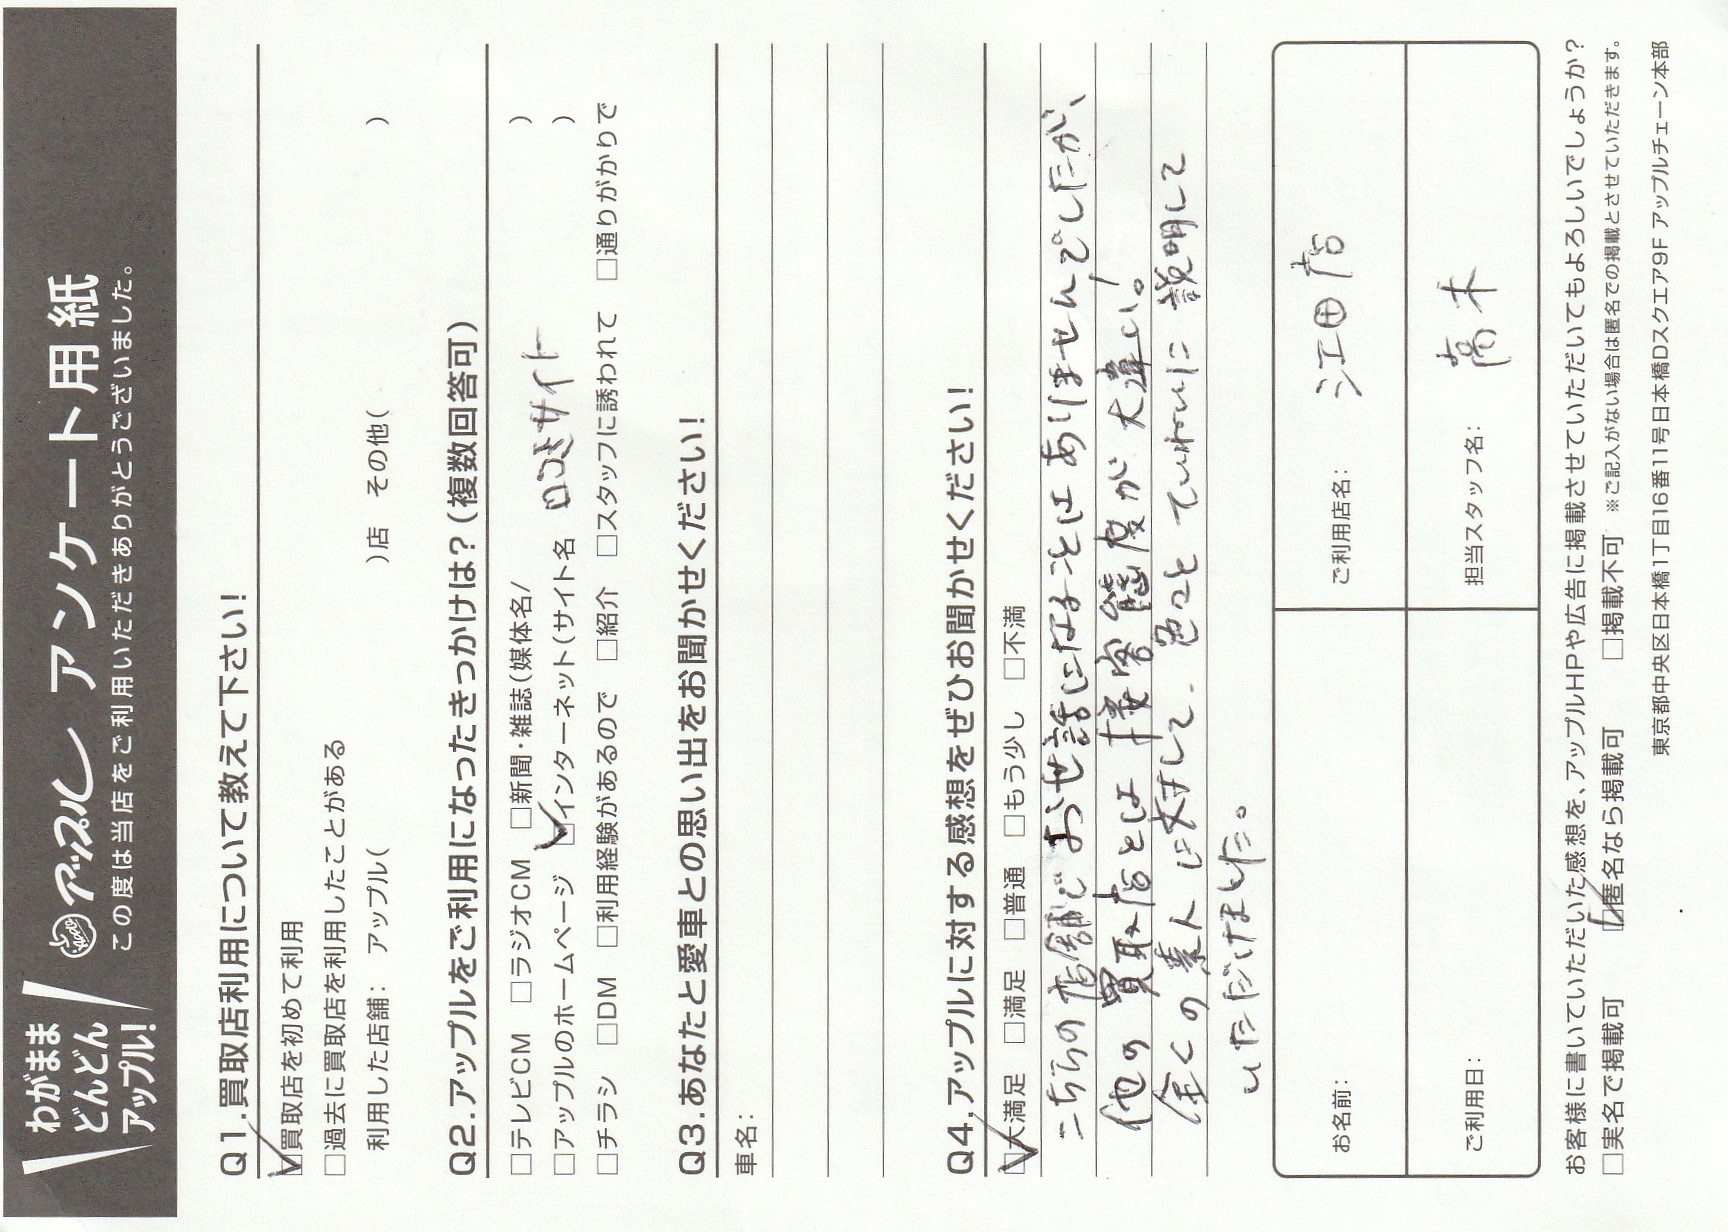 わがまま
どんどん
アップル!
アップル アンケート用紙
この度は当店をご利用いただきありがとうございました。
Q1.買取店利用について教えて下さい!
☑買取店を初めて利用
□過去に買取店を利用したことがある
利用した店舗: アップル( )店 その他( )
Q2.アップルをご利用になったきっかけは?(複数回答可)
□テレビCM □ラジオCM □新聞・雑誌(媒体名/ )
□アップルのホームページ ☑インターネット(サイト名 口コミサイト )
□チラシ □DM □利用経験があるので □紹介 □スタッフに誘われて □通りがかりで
Q3.あなたと愛車との思い出をお聞かせください!
車名:
Q4.アップルに対する感想をぜひお聞かせください!
☑大満足 □満足 □普通 □もう少し □不満
こちらの店舗でお世話になることはありませんでしたが、
他の買取店とは接客態度が大違い。
全くの素人に対して、色々とていねいに説明して
いただけました。
お名前: ご利用店名: 江田店
ご利用日: 担当スタッフ名: 高木
お客様に書いていただいた感想を、アップルHPや広告に掲載させていただいてもよろしいでしょうか?
□実名で掲載可 ☑匿名なら掲載可 □掲載不可 ※ご記入がない場合は匿名での掲載とさせていただきます。
東京都中央区日本橋1丁目16番11号日本橋Dスクエア9F アップルチェーン本部